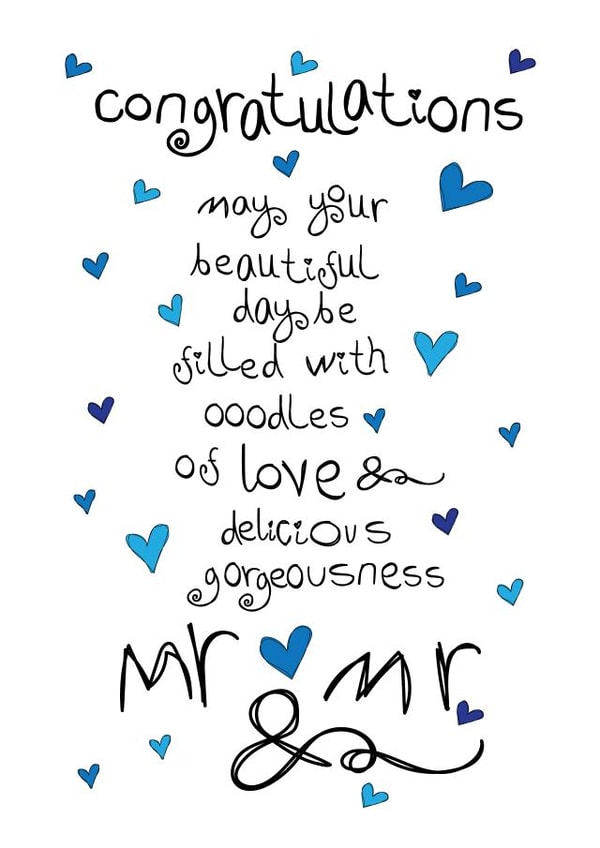 congratulations
may your
beautiful
day be
filled with
ooodles
of love &
delicious
gorgeousness
mr & mr